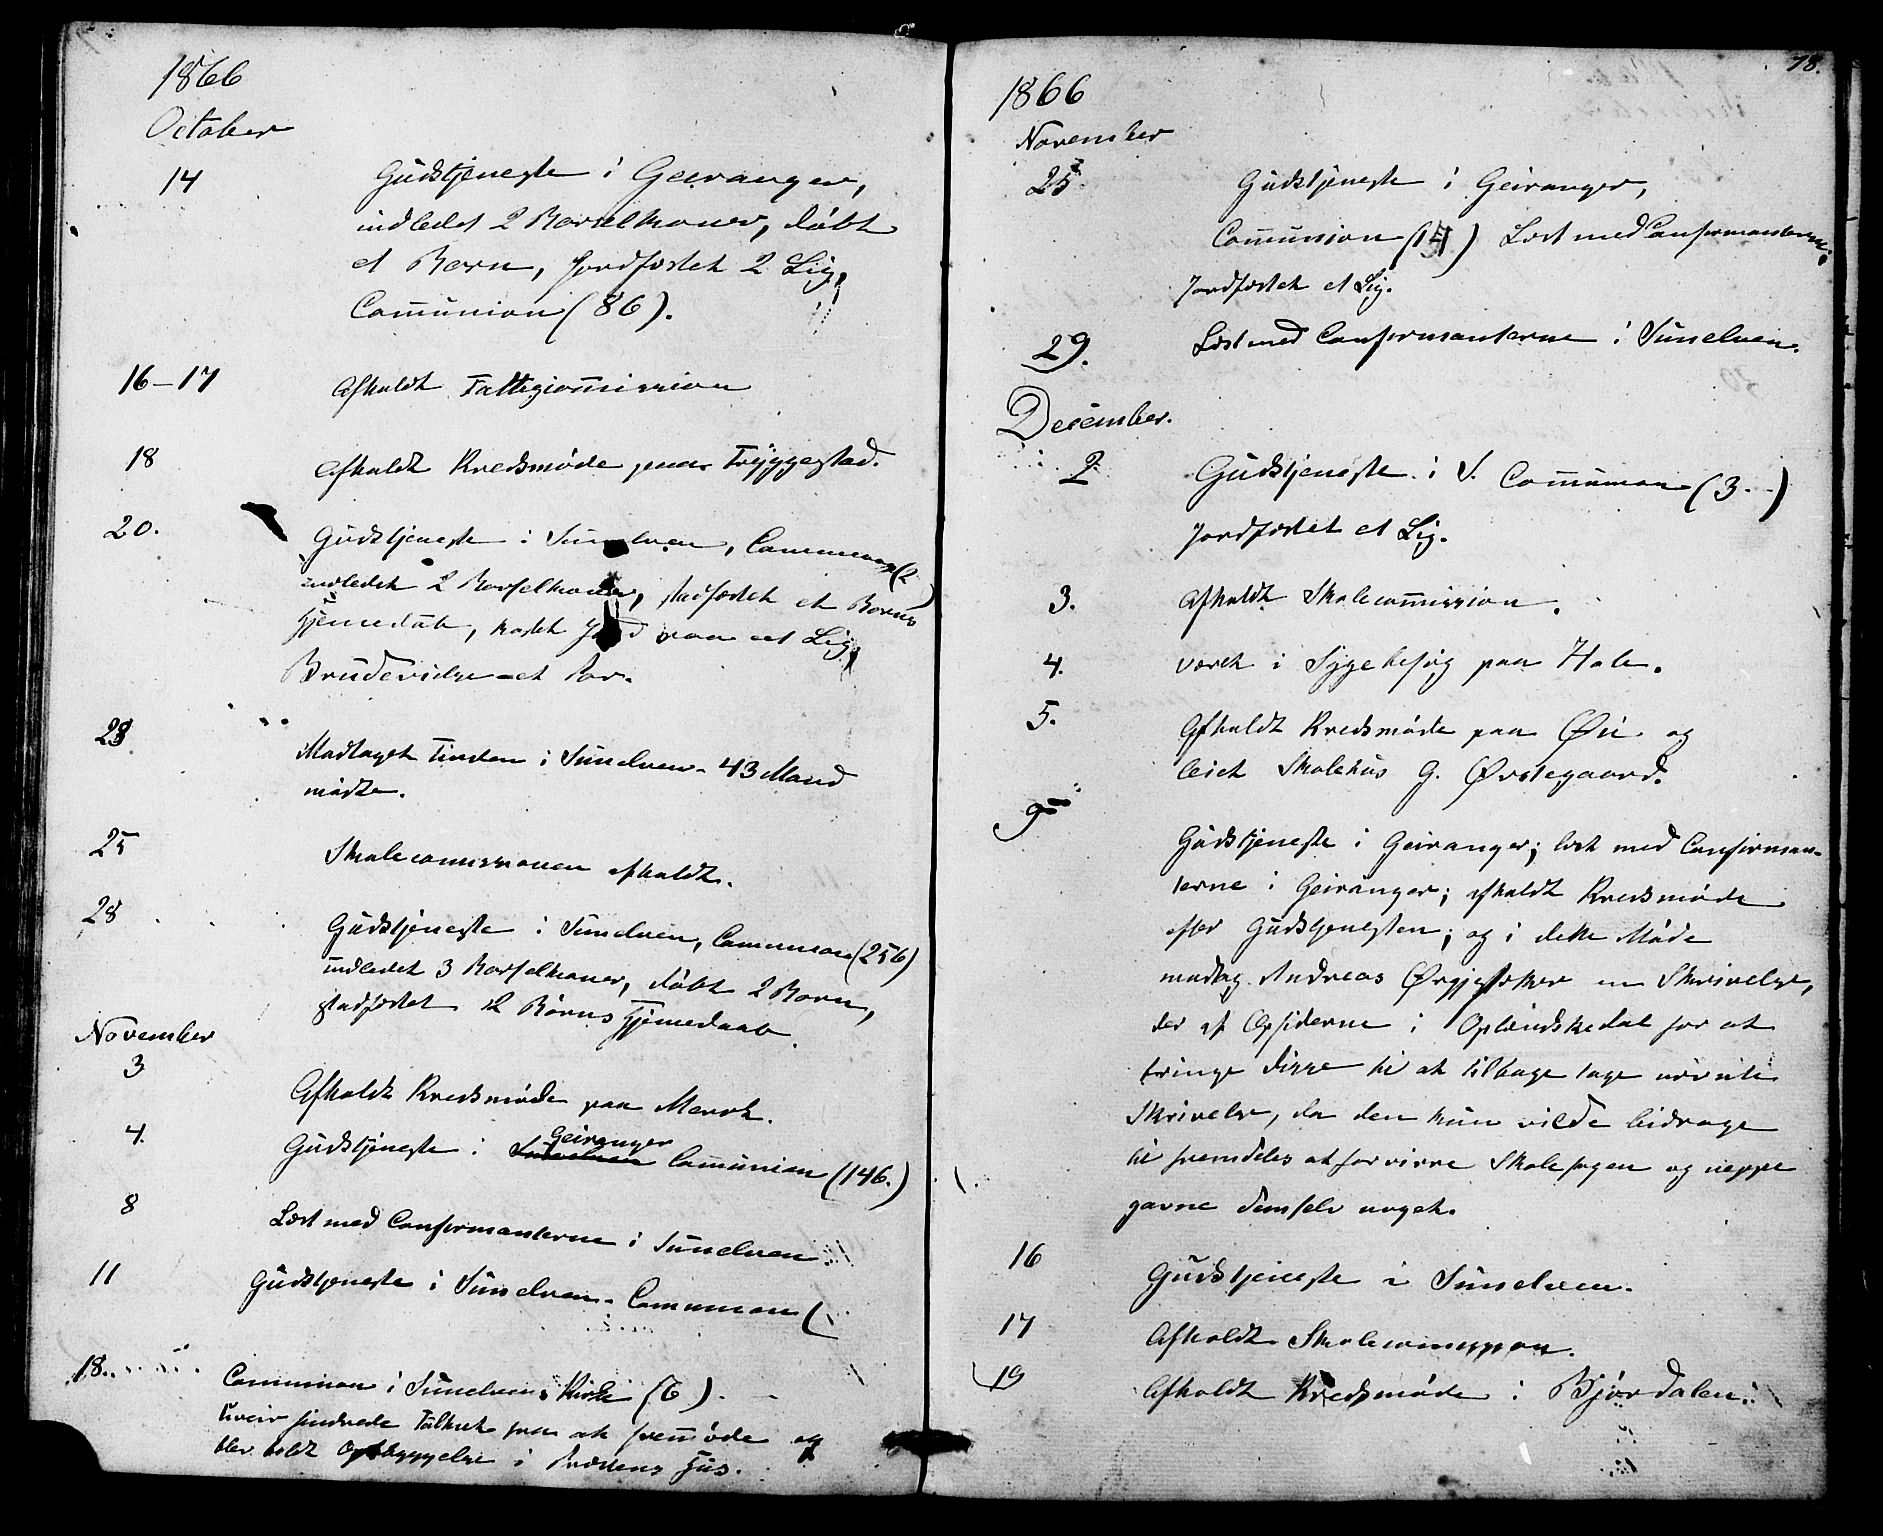 1866
October
14 Gudstjeneste i Geiranger,
indledet 2 Barselkoner, døbt
et Barn, Jordfæstet 2 Lig,
Communion (86).
16-17 Afholdt Fattigcommission
18 Afholdt Kredsmøde paa Tryggestad.
20. Gudstjeneste i Sunelven, Communion (2
indledet 2 Barselkoner, stadfæstet et Barns
Hjemedåb, kastet Jord paa et Lig,
Brudevielse et Par.
23 Modtaget Tienden i Sunelven - 43 Mand
mødte.
25 Skolecommissionen afholdt.
28 Gudstjeneste i Sunelven, Communion (256)
indledet 3 Barselkoner, døbt 2 Børn,
stadfæstet 2 Børns Hjemedaab.
November
3 Afholdt Kredsmøde paa Merok.
4. Gudstjeneste i Geiranger Communion (146.)
8 Læst med Confirmanterne i Sunelven
11 Gudstjeneste i Sunelven. Communion (
18. Communion i Sunelvens Kirke (6).
Uveir hindrede Folket fra at fremmøde og
blev holdt Opbyggelse i Præstens Hus.
78.
1866
November
25. Gudstjeneste i Geiranger,
Communion (14) Læst med Confirmanterne,
Jordfæstet et Lig.
29. Læst med Confirmanterne i Sunelven.
December.
2 Gudstjeneste i S. Communion (3 )
Jordfæstet et Lig.
3. Afholdt Skolecommission.
4. været i Sygebesøg paa Hole.
5. Afholdt Kredsmøde paa Øie og
leiet Skolehus G. Østegaard.
9 Gudstjeneste i Geiranger; læst med Confirman-
terne i Geiranger; afholdt Kredsmøde
efter Gudstjenesten; og i dette Møde
modtog Andreas en Skrivelse,
der af Opsiderne i Oplendskedal for at
bringe disse til at tilbage tage
Skrivelse, da den kun vilde bidrage
til fremdeles at forvirre Skolesagen og neppe
gavne demselv noget.
16 Gudstjeneste i Sunelven.
17 Afholdt Skolecommission.
19 Afholdt Kredsmøde i Bjørdalen.